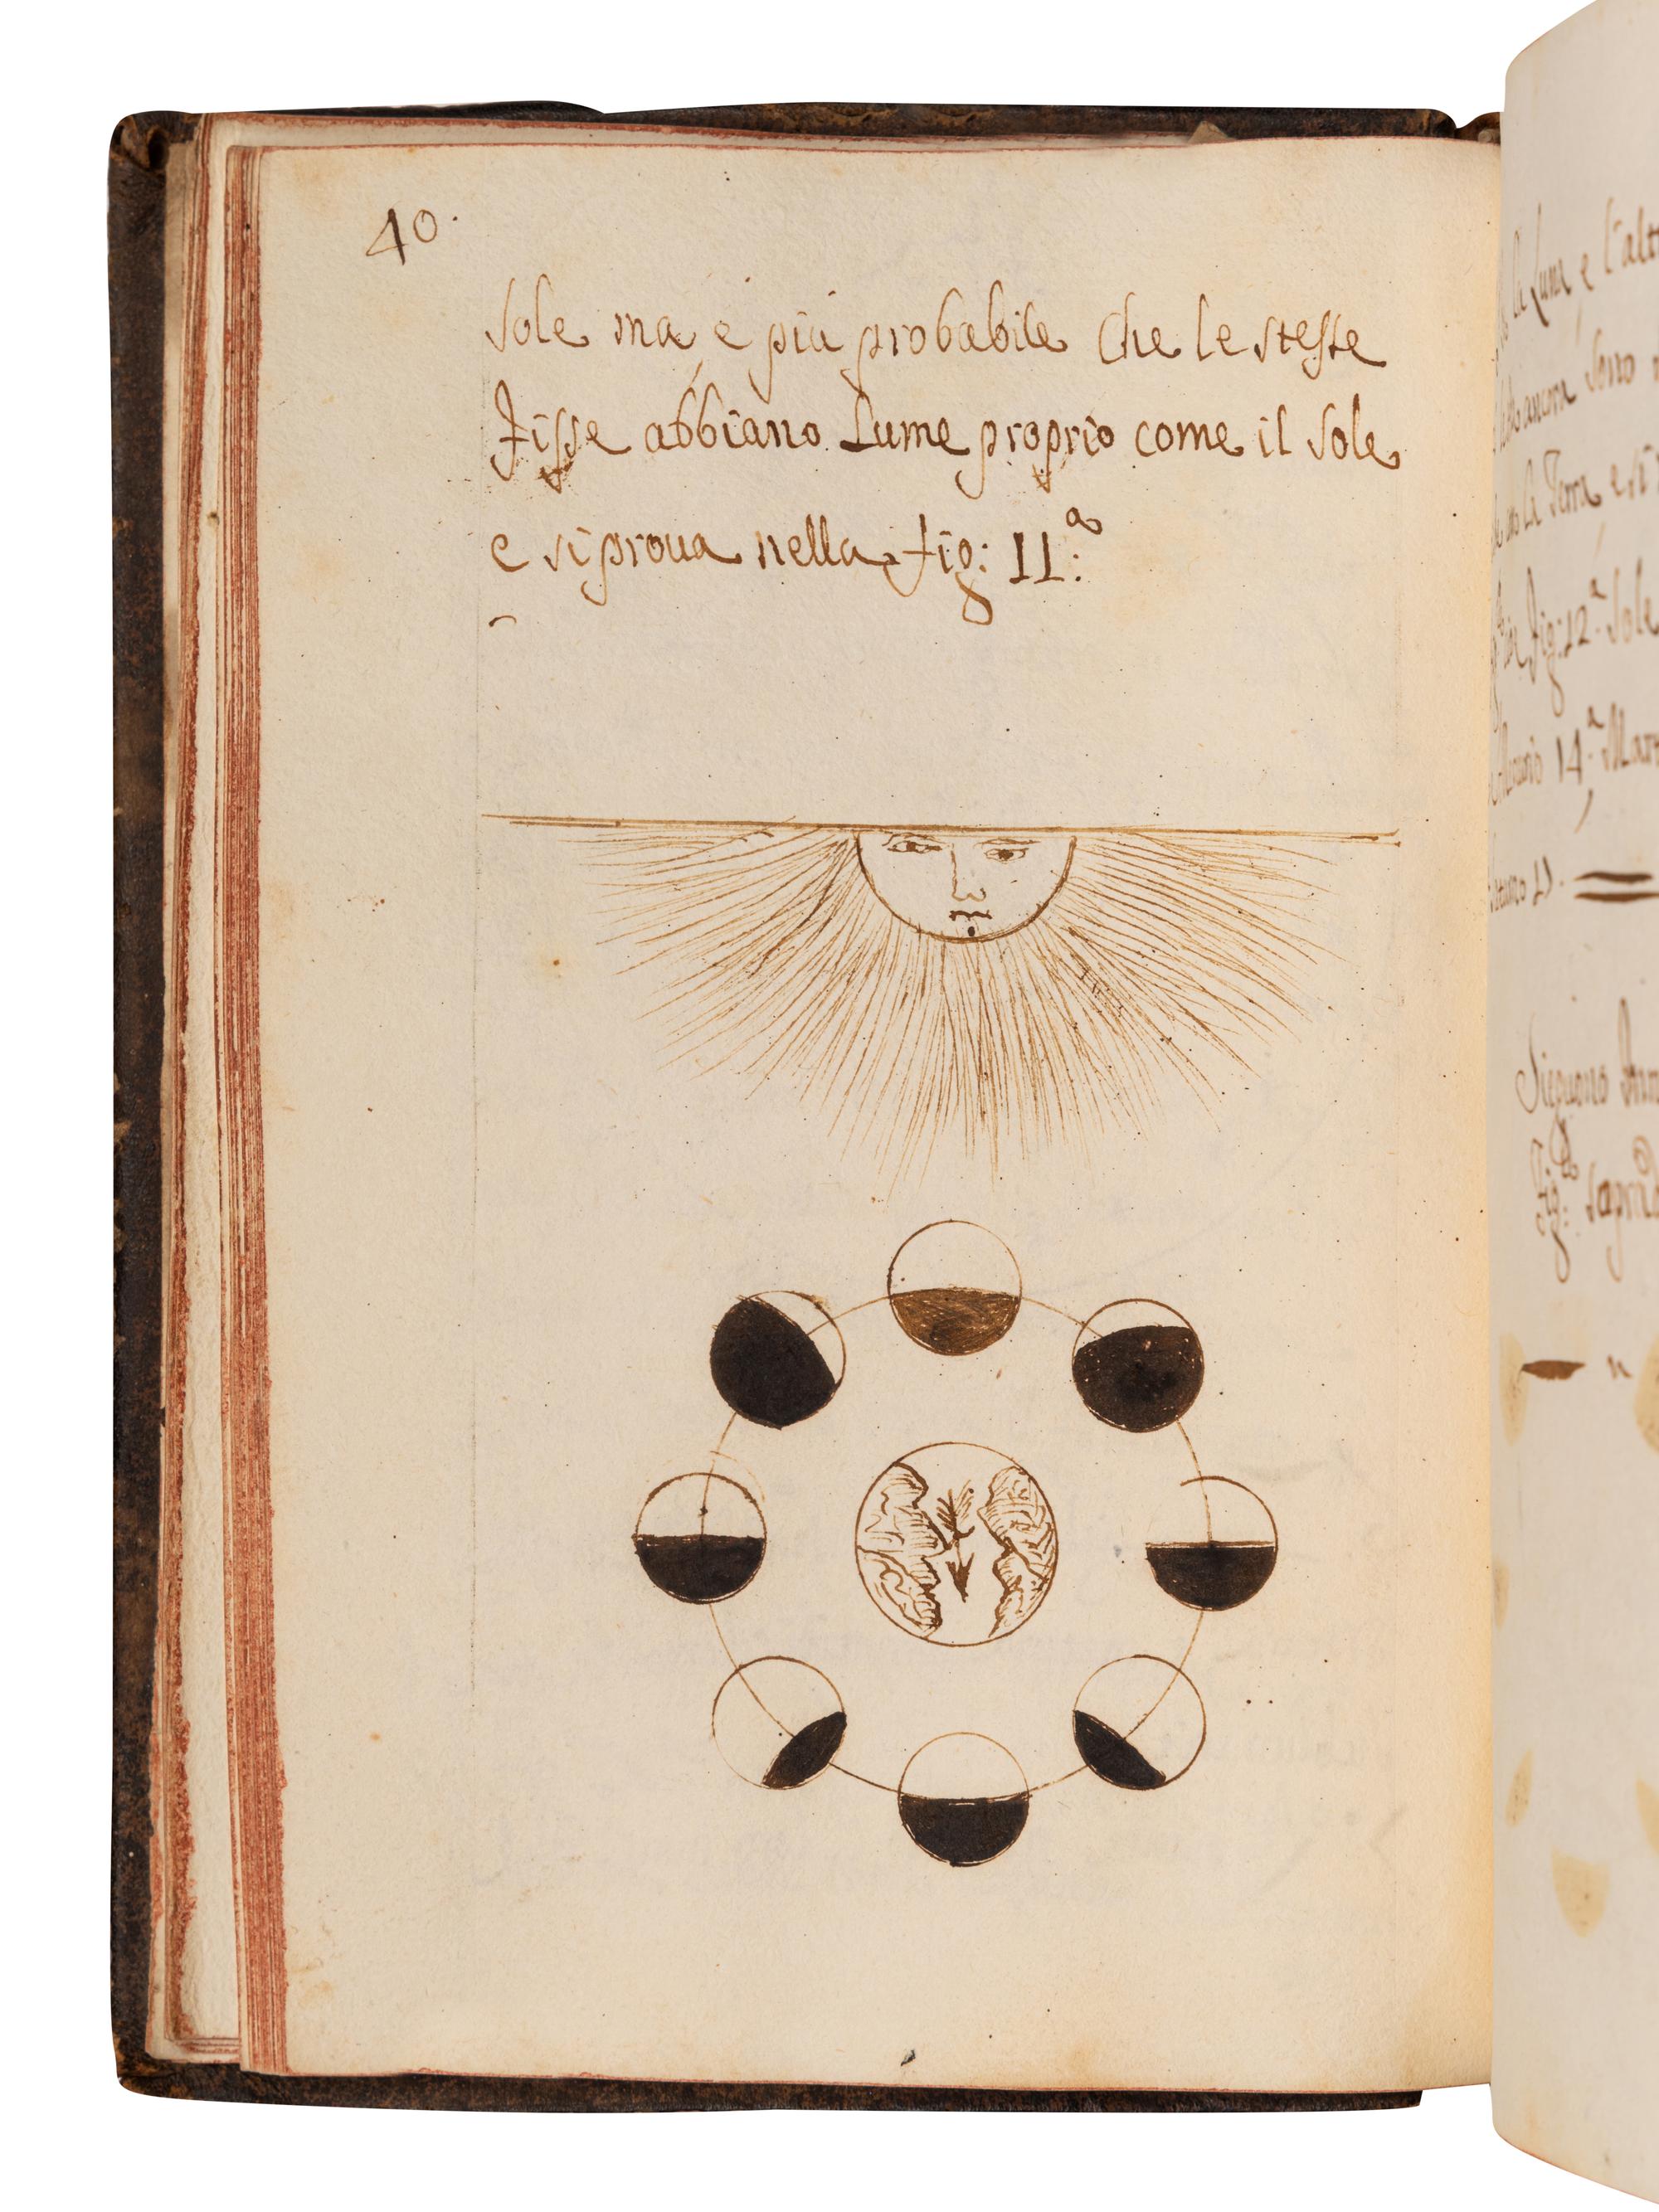 40.
sole ma è più probabile che le stesse
fisse abbiano Lume proprio come il sole
e si proua nella fig: 11:ª
la Luna e l'alt
ancora sono
la Terra e si
fig: 12.ª Sole
14.ª Mar
Sieguono
fig: